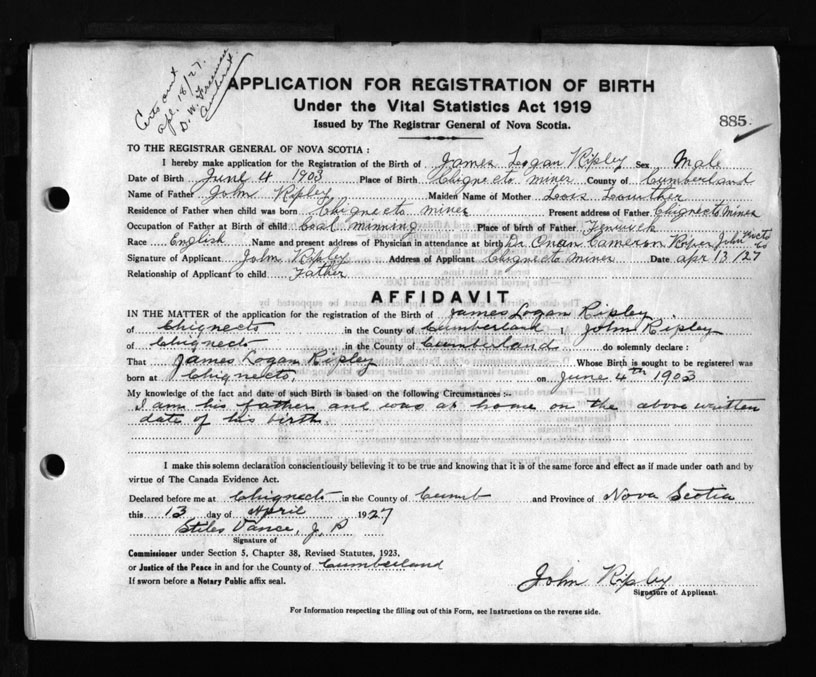 Certs out
apl. 18/27.
D. W. Freeman
Amherst
APPLICATION FOR REGISTRATION OF BIRTH
Under the Vital Statistics Act 1919
Issued by The Registrar General of Nova Scotia.
885
TO THE REGISTRAR GENERAL OF NOVA SCOTIA :
I hereby make application for the Registration of the Birth of James Logan Ripley Sex Male
Date of Birth June 4 1903 Place of Birth Chignecto mines County of Cumberland
Name of Father John Ripley Maiden Name of Mother Lois Lowther
Residence of Father when child was born Chignecto mines Present address of Father Chignecto Mines
Occupation of Father at Birth of child Coal minning Place of birth of Father
Race English Name and present address of Physician in attendance at birth Dr Cameron River John
Signature of Applicant John Ripley Address of Applicant Chignecto mines Date apr 13/27
Relationship of Applicant to child Father
AFFIDAVIT
IN THE MATTER of the application for the registration of the Birth of James Logan Ripley
of Chignecto in the County of Cumberland I, John Ripley
of Chignecto in the County of Cumberland do solemnly declare :
That James Logan Ripley Whose Birth is sought to be registered was
born at Chignecto. on June 4th 1903
My knowledge of the fact and date of such Birth is based on the following Circumstances :-
I am his father and was at home on the above written
date of his birth.
I make this solemn declaration conscientiously believing it to be true and knowing that it is of the same force and effect as if made under oath and by
virtue of The Canada Evidence Act.
Declared before me at Chignecto in the County of Cumb and Province of Nova Scotia
this 13 day of April 1927
Stiles Vance, J. P
Signature of
Commissioner under Section 5, Chapter 38, Revised Statutes, 1923.
or Justice of the Peace in and for the County of Cumberland
If sworn before a Notary Public affix seal.
John Ripley
Signature of Applicant.
For Information respecting the filling out of this Form, see Instructions on the reverse side.